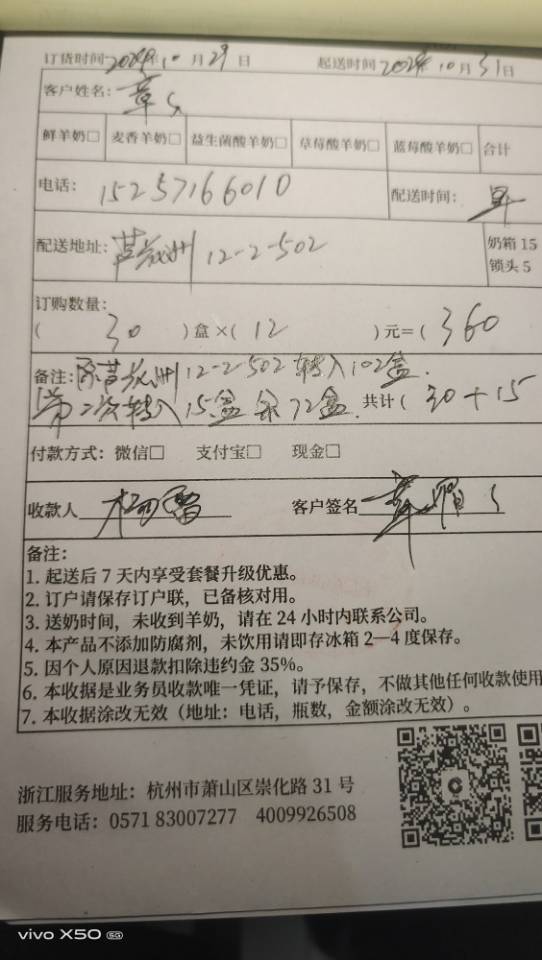 订货时间 2024年10月29日 起送时间 2024年10月31日
客户姓名: 章
鲜羊奶□ 麦香羊奶□ 益生菌酸羊奶□ 草莓酸羊奶□ 蓝莓酸羊奶□ 合计
电话: 15257166010 配送时间: 早
配送地址: 12-2-502 奶箱 15
锁头 5
订购数量:
( 30 )盒×( 12 )元=( 360
备注: 12-2-502 转入102盒.
第二次转入 15盒 余72盒. 共计( 30+15
付款方式: 微信□ 支付宝□ 现金□
收款人 杨 客户签名 章
备注:
1. 起送后 7 天内享受套餐升级优惠。
2. 订户请保存订户联，已备核对用。
3. 送奶时间，未收到羊奶，请在 24 小时内联系公司。
4. 本产品不添加防腐剂，未饮用请即存冰箱 2—4 度保存。
5. 因个人原因退款扣除违约金 35%。
6. 本收据是业务员收款唯一凭证，请予保存，不做其他任何收款使用
7. 本收据涂改无效（地址：电话，瓶数，金额涂改无效）。
浙江服务地址：杭州市萧山区崇化路 31 号
服务电话：0571 83007277 4009926508
vivo X50 5G